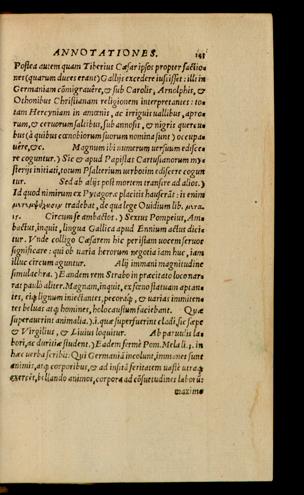 ANNOTATIONES. 143
Postea autem quam Tiberius Cæsar ipsos propter factio-
nes (quarum duces erant) Gallijs excedere iusisset: illi in
Germaniam cōmigrauêre, & sub Carolis, Arnolphis, &
Othonibus Christianam religionem interpretantes: to-
tam Hercyniam in amœnis, ac irriguis uallibus, apro-
rum, & ceruorum saltibus, sub annosis, & nigris quercu-
bus (à quibus cœnobiorum suorum nomina sunt) occupa-
uêre, &c. Magnum ibi numerum uersuum edisce-
re coguntur.) Sic & apud Papistas Cartusianorum my-
sterijs initiati, totum Psalterium uerbotim ediscere cogun
tur. Sed ab alijs post mortem transire ad alios.)
Id quod nimirum ex Pytagoræ placitis hauserāt: is enim
tradebat, de qua lege Ouidium lib. meta.
15. Circum se ambactos.) Sextus Pompeius, Am-
bactus, inquit, lingua Gallica apud Ennium actus dicia
tur. Vnde colligo Cæsarem hic peristam uocem seruos
significare: qui ob uaria herorum negotia iam huc, iam
illuc circum aguntur. Alij immani magnitudine
simulachra.) Eandem rem Strabo in præcitato loco nar-
rat paulò aliter. Magnam, inquit, ex fœno statuam aptan-
tes, eiq́; lignum iniectantes, pecoraq́;, & uarias immiten-
tes beluas atq́; homines, holocaustum faciebant. Quæ
superauerint animalia.) i. quæ superfuerint cladi, sic sæpe
& Virgilius, & Liuius loquitur. Ab paruulis la-
bori, ac duritiæ student.) Eadem fermè Pom. Mela li. 3. in
hæc uerba scribit: Qui Germaniā incolunt, immanes sunt
animis, atq́; corporibus, & ad insitā feritatem uastè utraq́;
exercēt, bellando animos, corpora ad cōsuetudines laborū
maxime